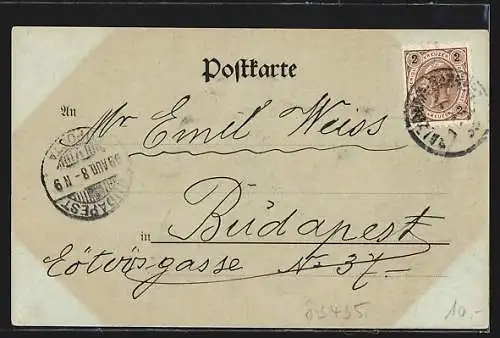 Postkarte
An Mr Emil Weiss
in Budapest
Eötvösgasse No 37.–
2 KREUZER 2
BUDAPEST
98 AUG 8 - N 9
89495.
10.-